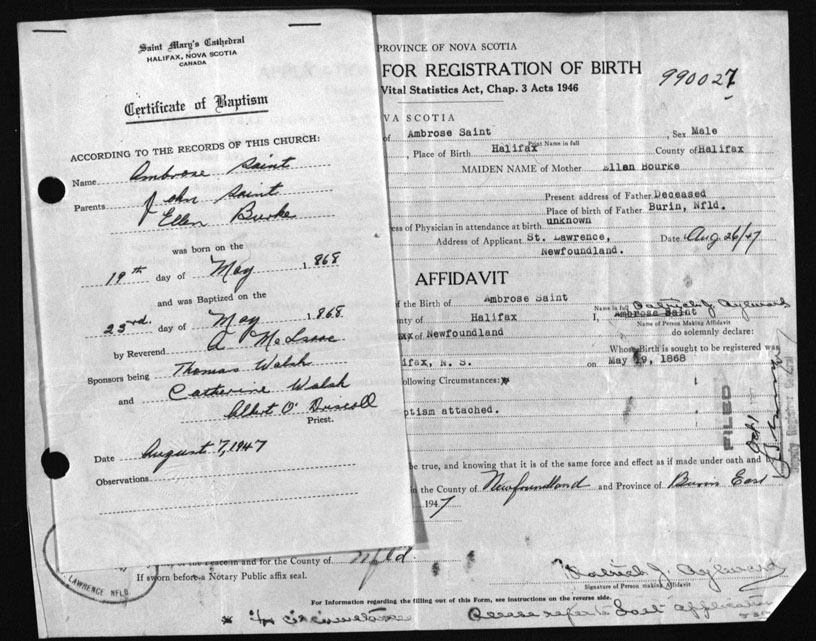 Saint Mary's Cathedral
HALIFAX, NOVA SCOTIA
CANADA
Certificate of Baptism
ACCORDING TO THE RECORDS OF THIS CHURCH:
Name Ambrose Saint
Parents John Saint
Ellen Burke
was born on the
19th day of May 1868
and was Baptized on the
23rd. day of May 1868
by Reverend A McIsaac
Sponsors being Thomas Walsh
and Catherine Walsh
Albert O'Driscoll
Priest.
Date August 7, 1947
Observations
PROVINCE OF NOVA SCOTIA
FOR REGISTRATION OF BIRTH
990027
Vital Statistics Act, Chap. 3 Acts 1946
VA SCOTIA
of Ambrose Saint, Sex Male
Print Name in full
, Place of Birth Halifax County of Halifax
MAIDEN NAME of Mother Ellan Bourke
Present address of Father Deceased
Place of birth of Father Burin, Nfld.
ess of Physician in attendance at birth unknown
Address of Applicant St. Lawrence, Date Aug 26/47
Newfoundland.
AFFIDAVIT
of the Birth of Ambrose Saint
Name in full Patrick J. Aylward
nty of Halifax I, Ambrose Saint
Name of Person Making Affidavit
of Newfoundland do solemnly declare:
Whose Birth is sought to be registered was
ifax, N. S. on May 19, 1868
ollowing Circumstances:
ptism attached.
FILED
be true, and knowing that it is of the same force and effect as if made under oath and by
in the County of Newfoundland and Province of Burin East
1947
Peace in and for the County of Nfld
If sworn before a Notary Public affix seal.
LAWRENCE NFLD.
Patrick J. Aylward
Signature of Person making Affidavit
For Information regarding the filling out of this Form, see instructions on the reverse side.
Please refer to last application